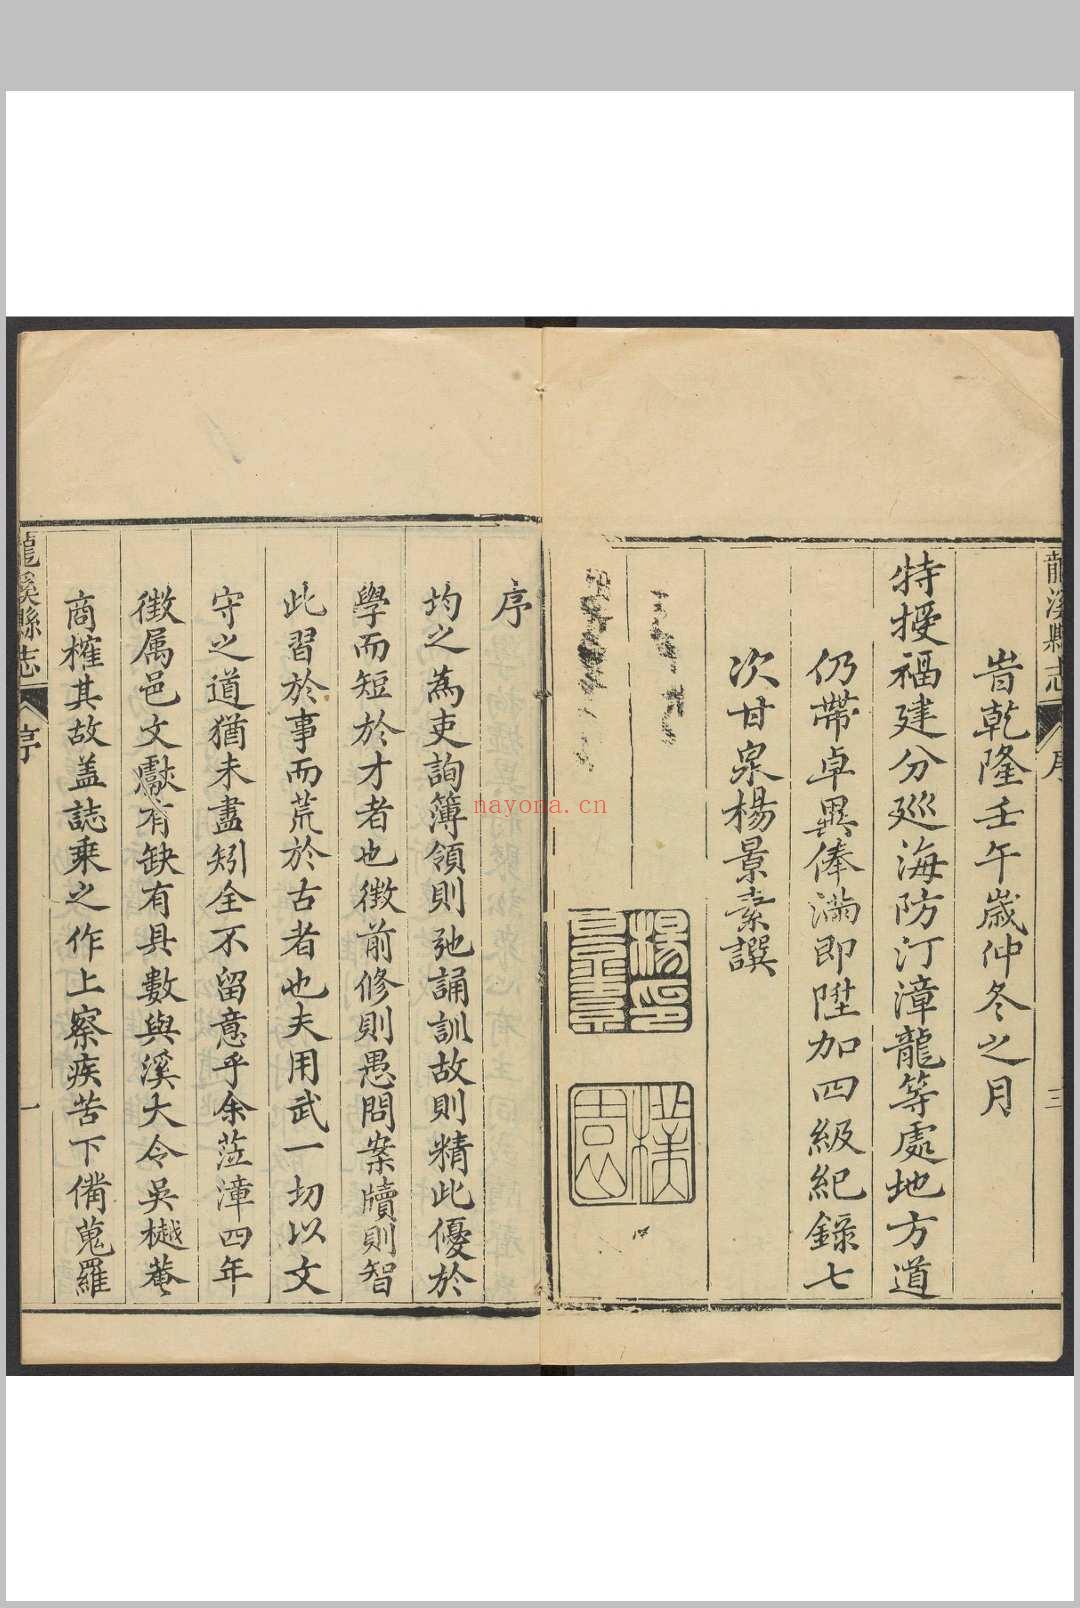 龍溪縣志
序
三
旹乾隆壬午歲仲冬之月
特授福建分巡海防汀漳龍等處地方道
仍帶卓異俸滿即陞加四級紀錄七
次甘泉楊景素譔
楊印景素
樸園
序
均之為吏詢簿領則弛誦訓故則精此優於
學而短於才者也徴前修則愚問案牘則智
此習於事而荒於古者也夫用武一切以文
守之道猶未盡矧全不留意乎余蒞漳四年
徴属邑文獻有缺有具數與溪大令吳樾菴
商榷其故盖誌乘之作上察疾苦下備蒐羅
龍溪縣志
序
一
nayona.cn